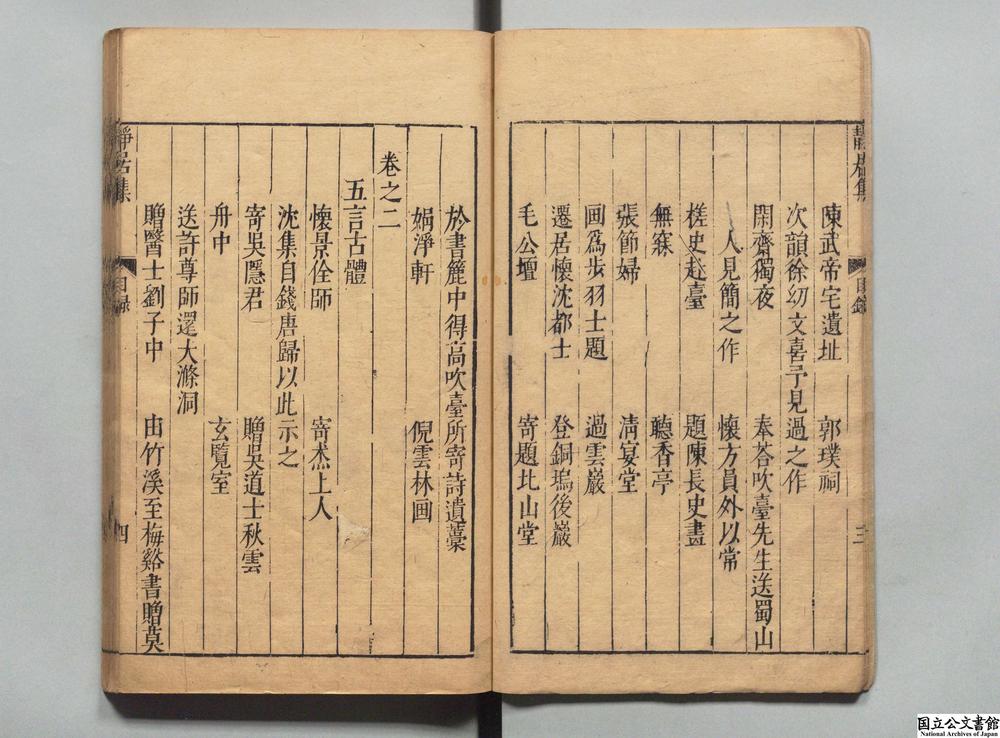 靜居集
目錄
三
陳武帝宅遺址　郭璞祠
次韻徐幼文喜予見過之作
閑齋獨夜　奉荅吹臺先生送蜀山
人見簡之作　懷方員外以常
槎史赴臺　題陳長史畫
無寐　聽香亭
張節婦　清宴堂
画為步羽士題　過雲巖
遷居懷沈都士　登銅塢後巖
毛公壇　寄題北山堂
於書簏中得高吹臺所寄詩遺藁
娟淨軒　倪雲林画
卷之二
五言古體
懷景佺師　寄杰上人
沈集自錢唐歸以此示之
寄吳隱君　贈吳道士秋雲
舟中　玄覽室
送許尊師還大滌洞
贈醫士劉子中　由竹溪至梅谿書贈莫
靜居集
目錄
四
国立公文書館
National Archives of Japan